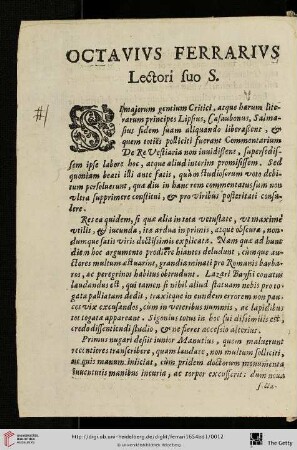 OCTAVIVS FERRARIVS
Lectori suo S.
#/
SI majorum gentium Critici, atque harum lite-
rarum principes Lipsius, Casaubonus, Salma-
sius fidem suam aliquando liberassent, &
quem toties polliciti fuerant Commentarium
De Re Vestiaria non invidissent, supersedis-
sem ipse labore hoc, atque aliud interim promisissem. Sed
quoniam beati illi aut facti, quàm studiosorum voto debi-
tum persoluerunt, qua diu in hanc rem commentatus sum non
vltra supprimere constitui, & pro viribus posteritati consu-
lere.
Res ea quidem, si qua alia in tota vetustate, vt maximè
vtilis, & iucunda, ita ardua in primis, atque obscura, non-
dumque satis viris doctissimis explicata. Nam qua ad hunc
diem hoc argumento prodiêre hiantes deludunt, cùmque au-
ctores multùm auctuarint, grandia inani pro Romanis barba-
ros, ac peregrinos habitus obtrudunt. Lazari Baysii conatus
laudandus est, qui tamen si nihil aliud statuam nobis pro to-
gata palliatam dedit, traxitque in eundem errorem non pau-
cos vix excusandos, cum in veteribus nummis, ac lapidibus
tot togata appareant. Sigonius totus in hoc sui dissimilis est,
credo dissentiendi studio, & ne fieret accessio alterius.
Primus nugari desiit iunior Manutius, quem maluerunt
recentiores transcribere, quam laudare, non multùm solliciti,
ne quis manum iniiciat, cùm pridem doctorum monumenta
iuuentutis manibus incuria, ac torpor excusserit: dum noua
http://digi.ub.uni-heidelberg.de/diglit/ferrari1654bd1/0012
© Universitätsbibliothek Heidelberg
The Getty